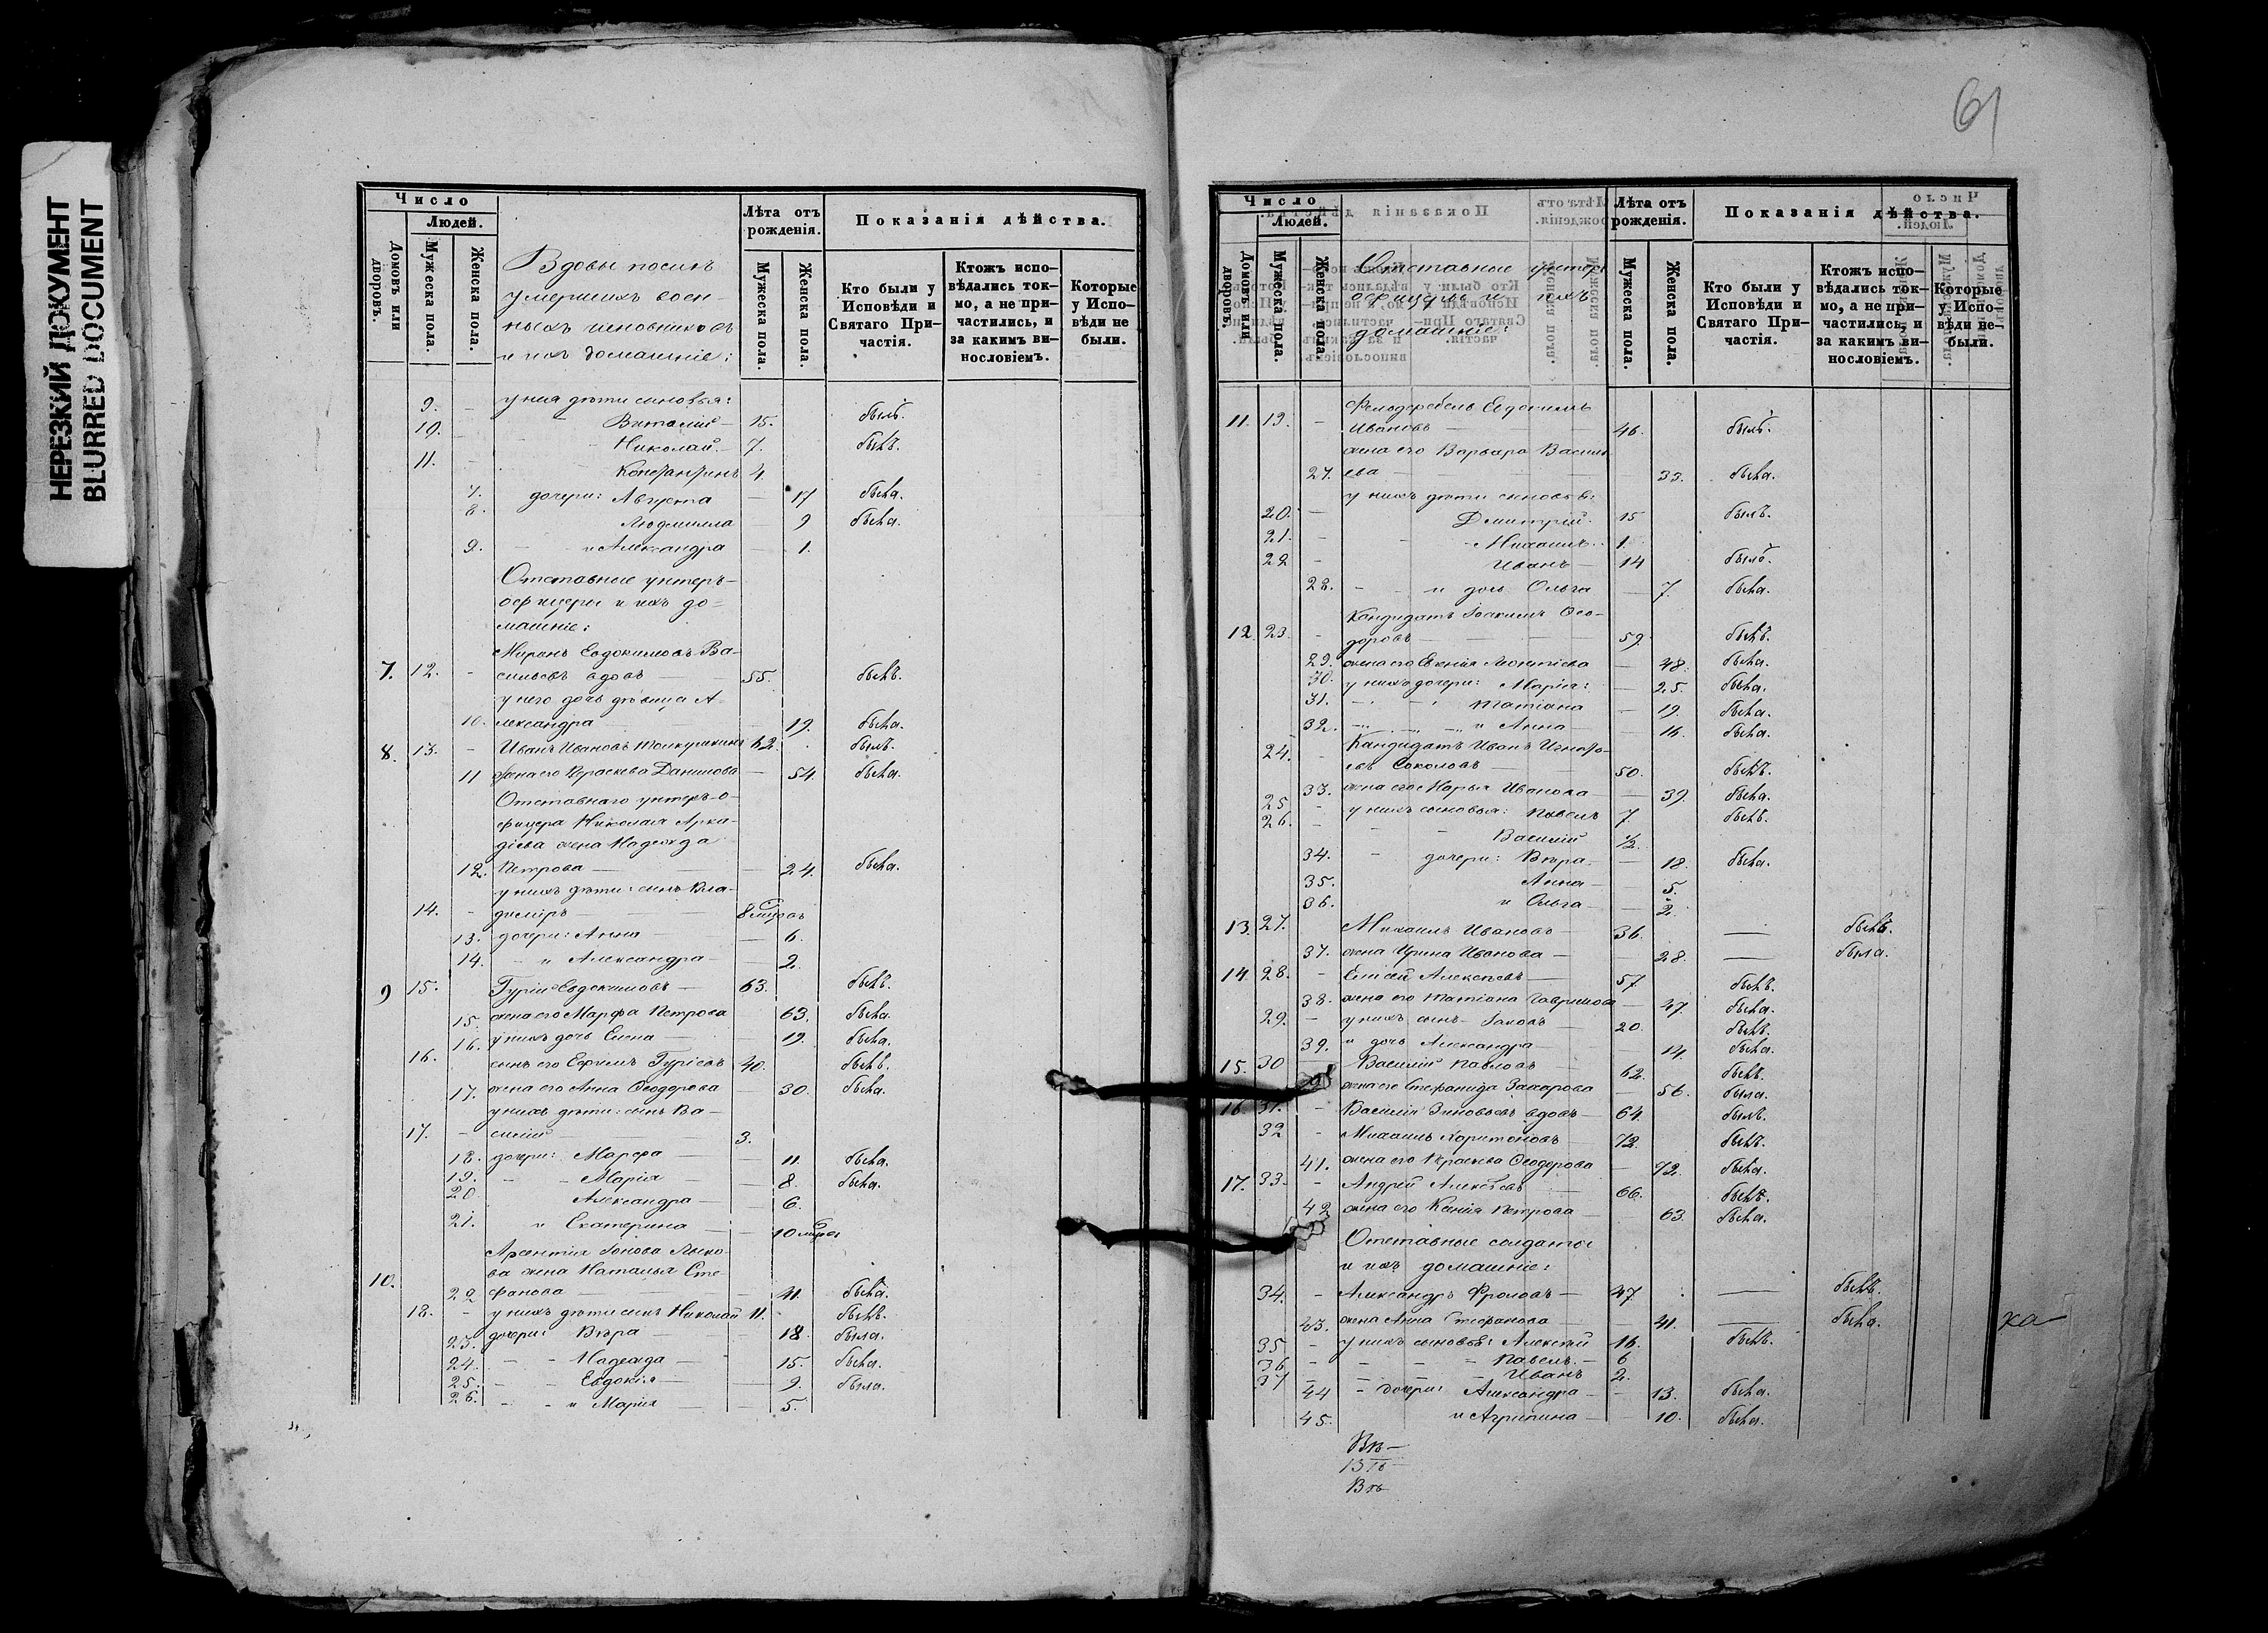 НЕРЕЗКИЙ ДОКУМЕНТ
BLURRED DOCUMENT
Число
Людей.
Домовъ или дворовъ.
Мужеска пола.
Женска пола.
Вдовы послѣ
умершихъ воен-
ныхъ чиновниковъ
и ихъ домашніе:
Лѣта отъ рожденія.
Мужеска пола.
Женска пола.
Показанія дѣйства.
Кто были у Исповѣди и Святаго При-частія.
Ктожъ испо-вѣдались ток-мо, а не при-частились, и за какимъ ви-нословіемъ.
Которые у Испо-вѣди не были.
у нея дѣти сыновья:
9. Виталій 15. былъ.
10. Николай 7. былъ.
11. Константинъ 4.
7. дочери: Августа 17 была.
8. Людмилла 9 была.
9. и Александра 1.
Отставные унтеръ-
офицеры и ихъ до-
машніе:
Миронъ Евдокимовъ Ва-
7. 12. сильевъ вдовъ 55. былъ.
у него дочь дѣвица А-
10. лександра 19. была.
8. 13. Иванъ Ивановъ 62. былъ.
11 жена его Параскева Данилова 54. была.
Отставнаго унтеръ-о-
фицера Николая Арка-
діева жена Надежда
12. Петрова 24. была.
у нихъ дѣти: сынъ Вла-
14. диміръ 8 мцовъ
13. дочери: Анна 6.
14. и Александра 2.
9 15. Гурій Евдокимовъ 63. былъ.
15. жена его Марфа Петрова 63. была.
16. у нихъ дочь Елена 19. была.
16. сынъ его Ефимъ Гуріевъ 40. былъ.
17. жена его Анна Ѳеодорова 30. была.
у нихъ дѣти: сынъ Ва-
17. силій 3.
18. дочери: Марфа 11. была.
19. Марія 8. была.
20 Александра 6.
21. и Екатерина 10 мцов
Арсентія Іонова Лыко-
10. ва жена Наталья Сте-
22 фанова 41. была.
18. у нихъ дѣти сынъ Николай 11. былъ.
23. дочери: Вѣра 18. была.
24. Надежда 15. была.
25. Евдокія 9. была.
26. и Марія 5.
61
Число
Людей.
Домовъ или дворовъ.
Мужеска пола.
Женска пола.
Отставные унтеръ
офицеры и ихъ
домашніе:
Лѣта отъ рожденія.
Мужеска пола.
Женска пола.
Показанія дѣйства.
Кто были у Исповѣди и Святаго При-частія.
Ктожъ испо-вѣдались ток-мо, а не при-частились, и за какимъ ви-нословіемъ.
Которые у Испо-вѣди не-были.
Фельдфебель Евдокимъ
11. 19. Ивановъ 46. былъ.
жена его Варвара Василь
27. ева 33. была.
у нихъ дѣти сыновья:
20. Дмитрій 15 былъ.
21. Михаилъ 1.
22 Иванъ 14 былъ.
28. и дочь Ольга 7. была.
Кандидатъ Іоакимъ Ѳео-
12. 23. доровъ 59. былъ.
29. жена его Евгенія Леонтіева 48. была.
30. у нихъ дочери: Марія: 25. была.
31. Татіана 19. была.
32. и Анна 16. была.
Кандидатъ Иванъ Игнать-
24. евъ Соколовъ 50. былъ.
33. жена его Марья Иванова 39. была.
25 у нихъ сыновья: Павелъ 7. былъ.
26. Василій 1/2.
34. дочери: Вѣра 18. была.
35. Анна 5.
36. и Ольга 2.
13. 27. Михаилъ Ивановъ 36. былъ.
37. жена Ирина Иванова 28. была.
14 28. Елисей Алексѣевъ 57 былъ.
38. жена его Татіана Гаврилова 47. была.
29. у нихъ сынъ Іаковъ 20. былъ.
39. и дочь Александра 14. была.
15. 30 Василій Павловъ 62. былъ.
жена его Стефанида Захарова 56. была.
16 31. Василій Зиновьевъ вдовъ 64. былъ.
32 Михаилъ Харитоновъ 72. былъ.
41. жена его Параскева Ѳеодорова 72. была.
17. 33. Андрей Алексѣевъ 66. былъ.
42 жена его Ксенія Петрова 63. была.
Отставные солдаты
и ихъ домашніе:
34. Александръ Фроловъ 47. былъ.
43. жена Анна Стефанова 41. была.
35 у нихъ сыновья: Алексѣй 16. былъ.
36 Павелъ 6
37 Иванъ 2.
44 дочери: Александра 13. была.
45. и Агрипина 10. была.
ка